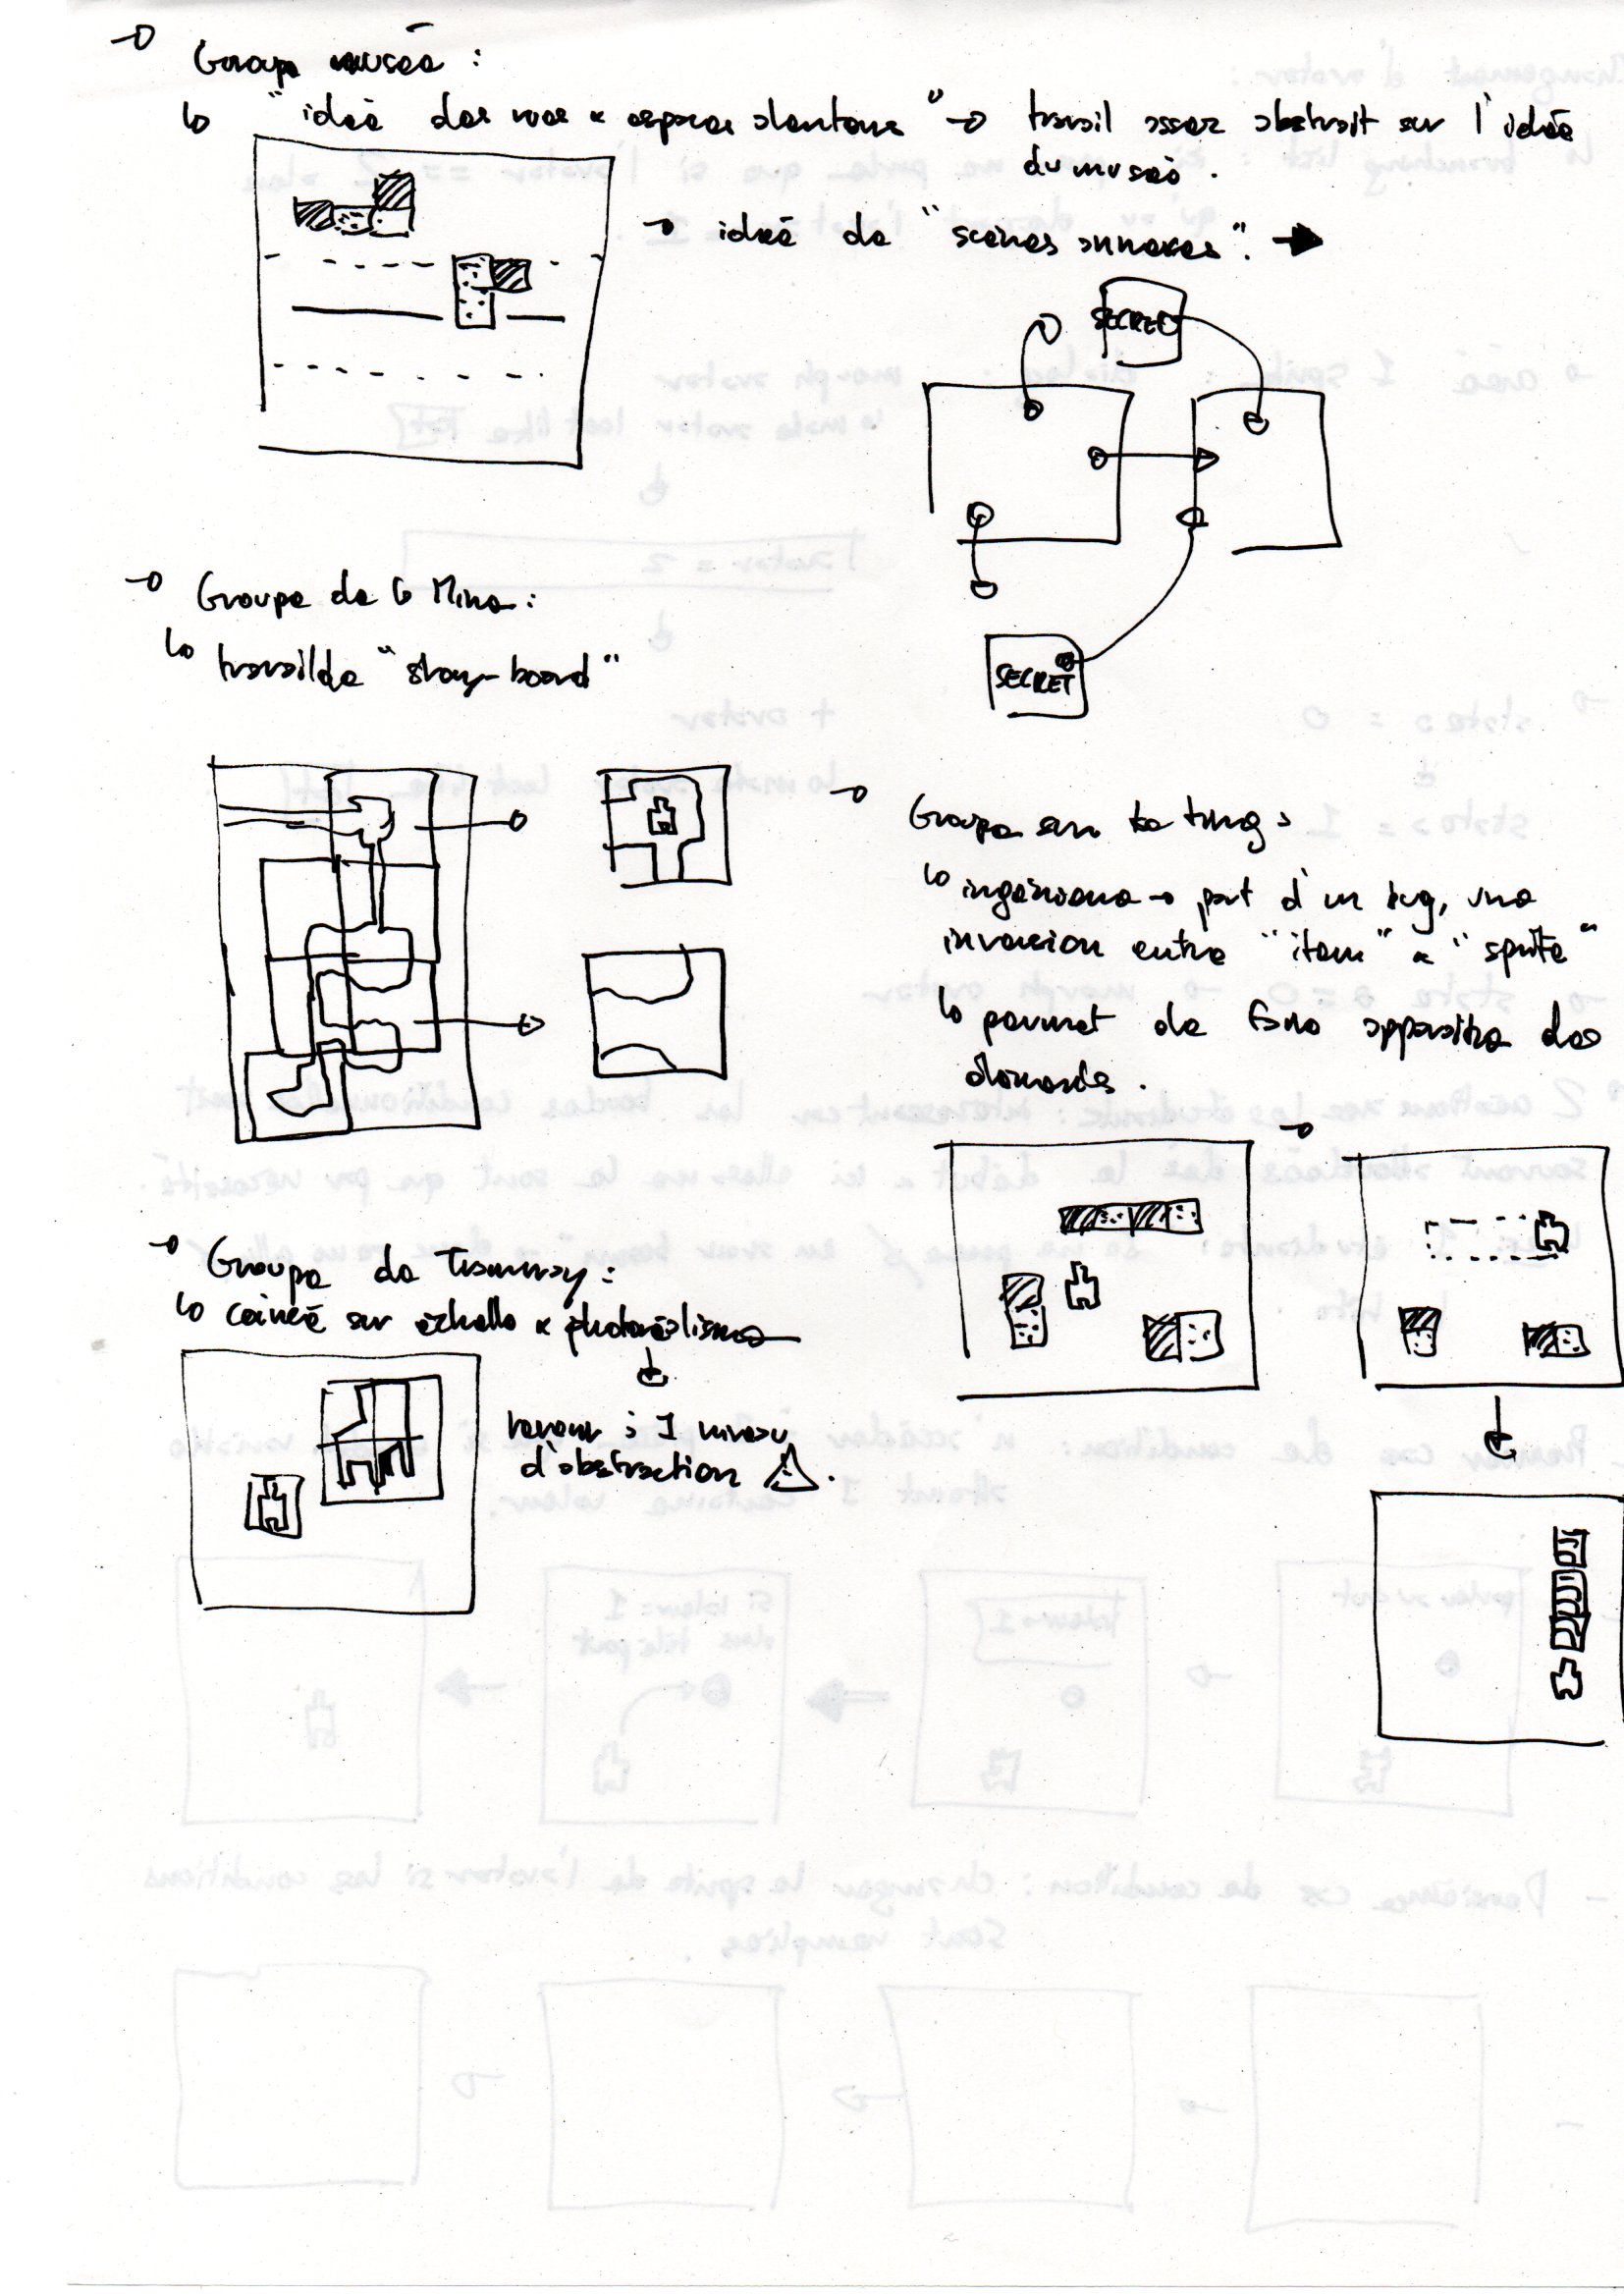 Groupe musée :
"idée des rues & espaces alentours" → travail assez abstrait sur l'idée
du musée.
→ idée de "scènes annexes". →
SECRET
SECRET
→ Groupe de la Mine :
↳ travail de "story-board"
→ Groupe sur
↳ ingénieux → part d'un bug, une
inversion entre "item" & "sprite"
↳ permet de faire apparaitre des
éléments.
→ Groupe de Tramway :
↳ coincé sur échelle & photoréalisme
revenir à 1 niveau
d'abstraction ⚠.